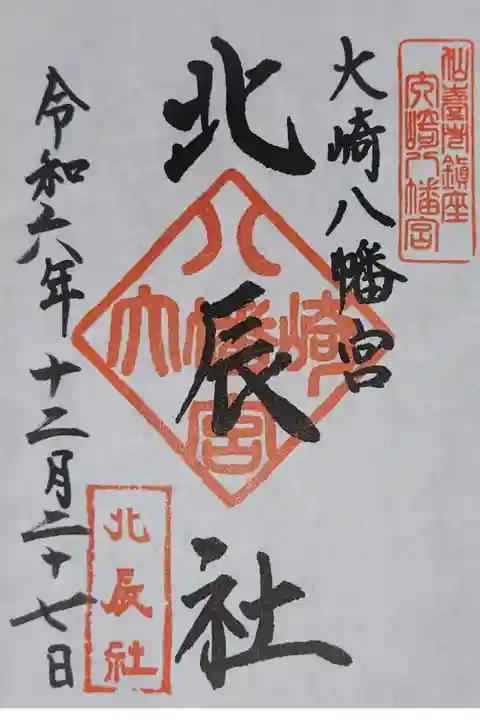 仙臺市鎮座
大崎八幡宮
大崎八幡宮
北辰社
八
大幡崎
宮
北辰社
令和六年十二月二十七日